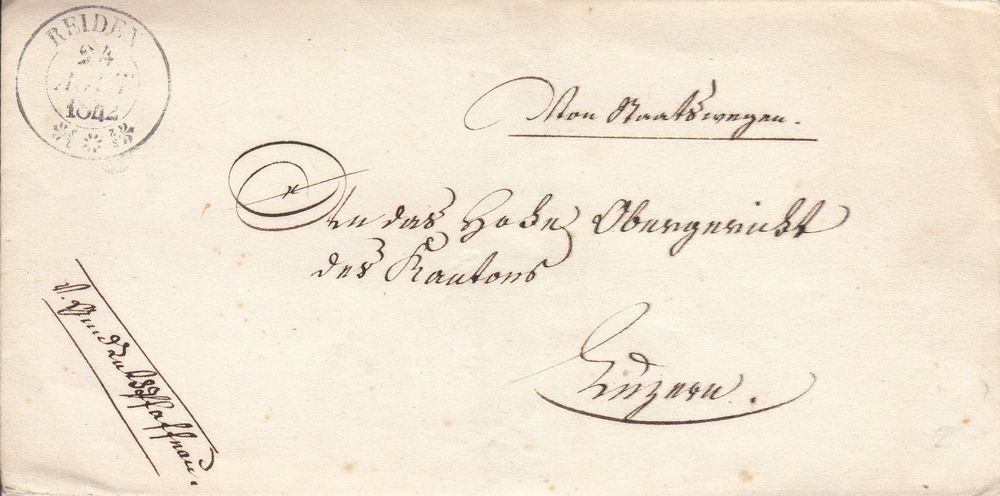 REIDEN
24
AOUT
1842
Von Staatswegen.
An das Hohe Obergericht
des Kantons
Luzern.
Pfaffnau.